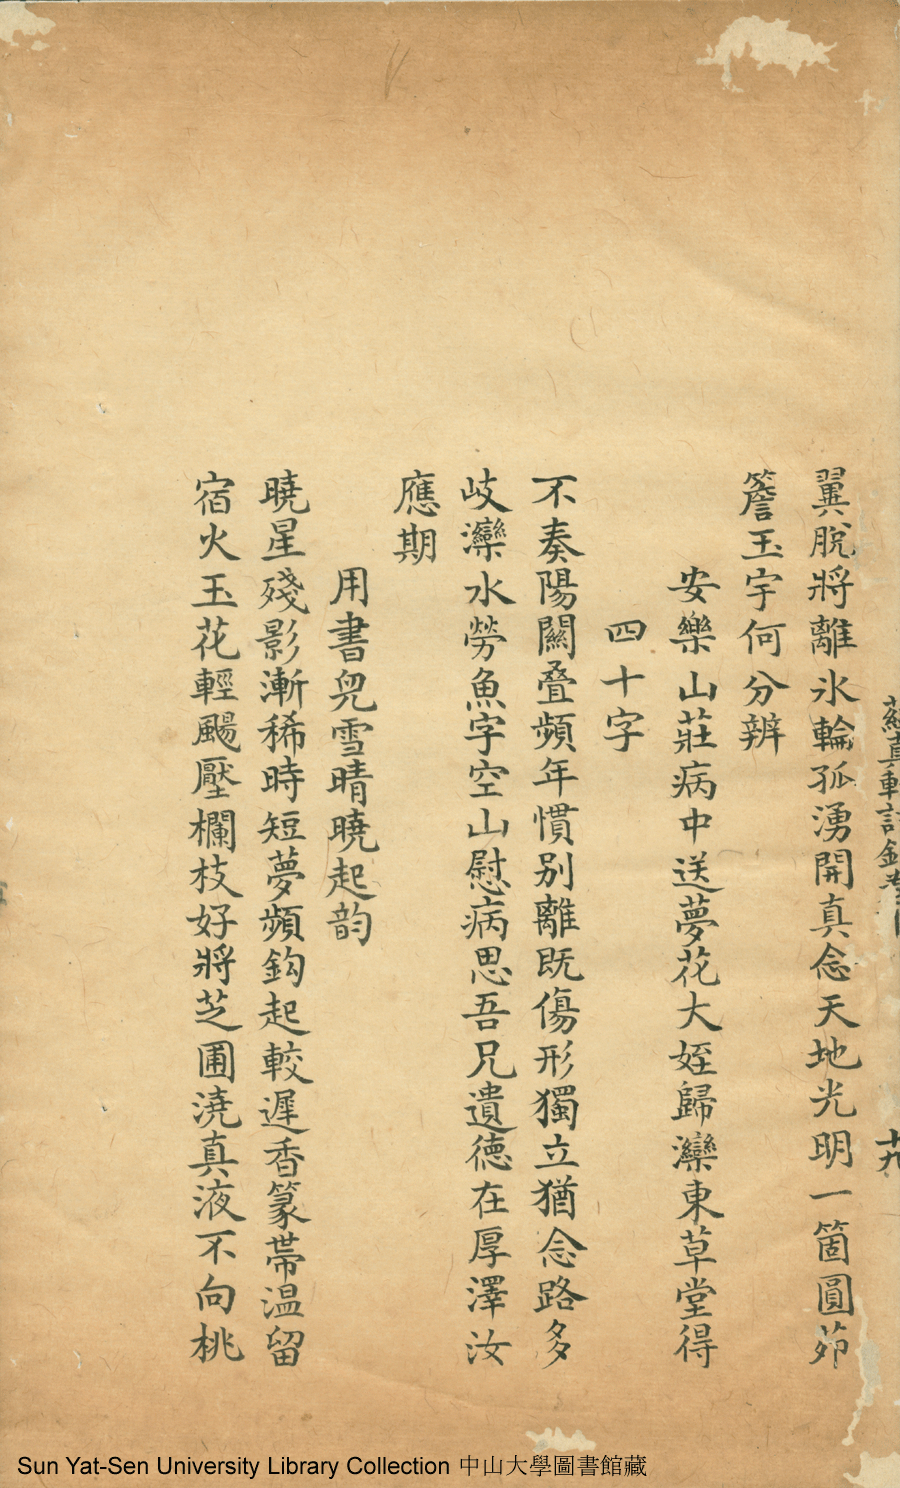 翼脫將離氷輪孤湧開真念天地光明一箇圓茆
簷玉宇何分辨
安樂山莊病中送夢花大姪歸灤東草堂得
四十字
不奏陽關疊頻年慣别離既傷形獨立猶念路多
岐灤水勞魚字空山慰病思吾兄遺德在厚澤汝
應期
用書兒雪晴曉起韵
曉星殘影漸稀時短夢頻鈎起較遲香篆帶温留
宿火玉花輕颺壓欄枝好將芝圃澆真液不向桃
十九
Sun Yat-Sen University Library Collection 中山大學圖書館藏